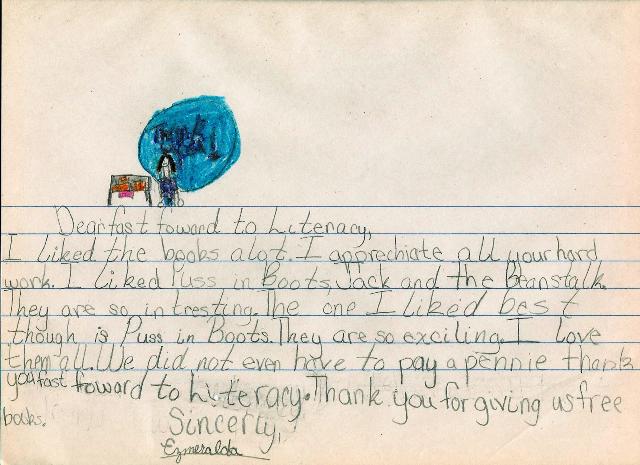 Thank
you!
Dear fast foward to Literacy,
I liked the books alot. I apprechiate all your hard
work. I liked Puss in Boots, Jack and the Beanstalk.
They are so intresting. The one I liked best
though is Puss in Boots. They are so exciling. I love
them all. We did not even have to pay a pennie thank
you fast foward to Literacy. Thank you for giving us free
books.
Sincerly,
Ezmeralda